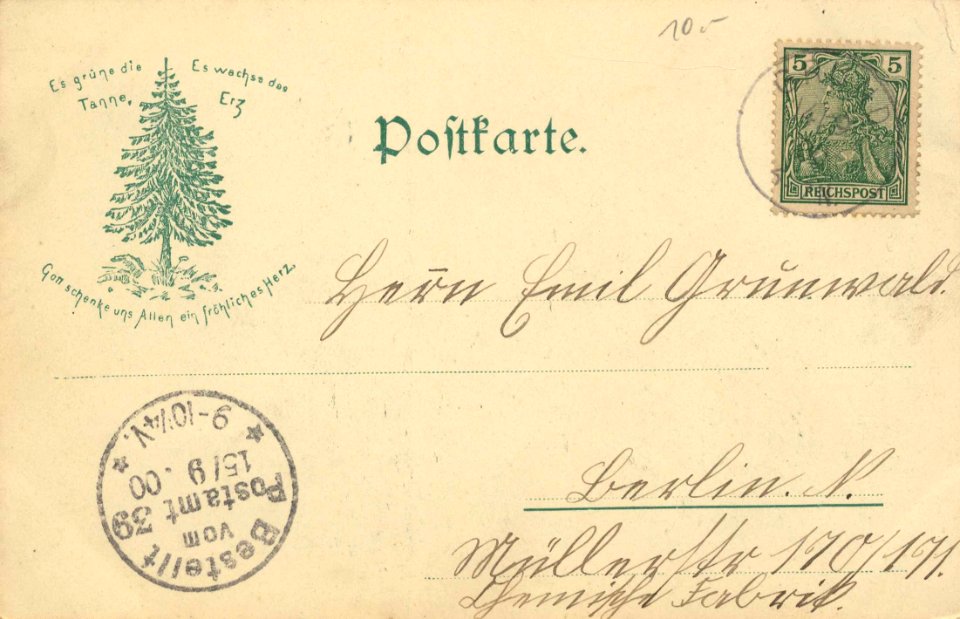 10.-
Es grüne die
Tanne,
Es wachse das
Erz
Gott schenke uns Allen ein fröhliches Herz.
Postkarte.
5 5
REICHSPOST
Herrn Emil Grunwald.
Berlin. N.
Müllerstr 170/171.
Chemische Fabrik.
Bestellt
vom
Postamt 39
15/9.00
9-10¼V.